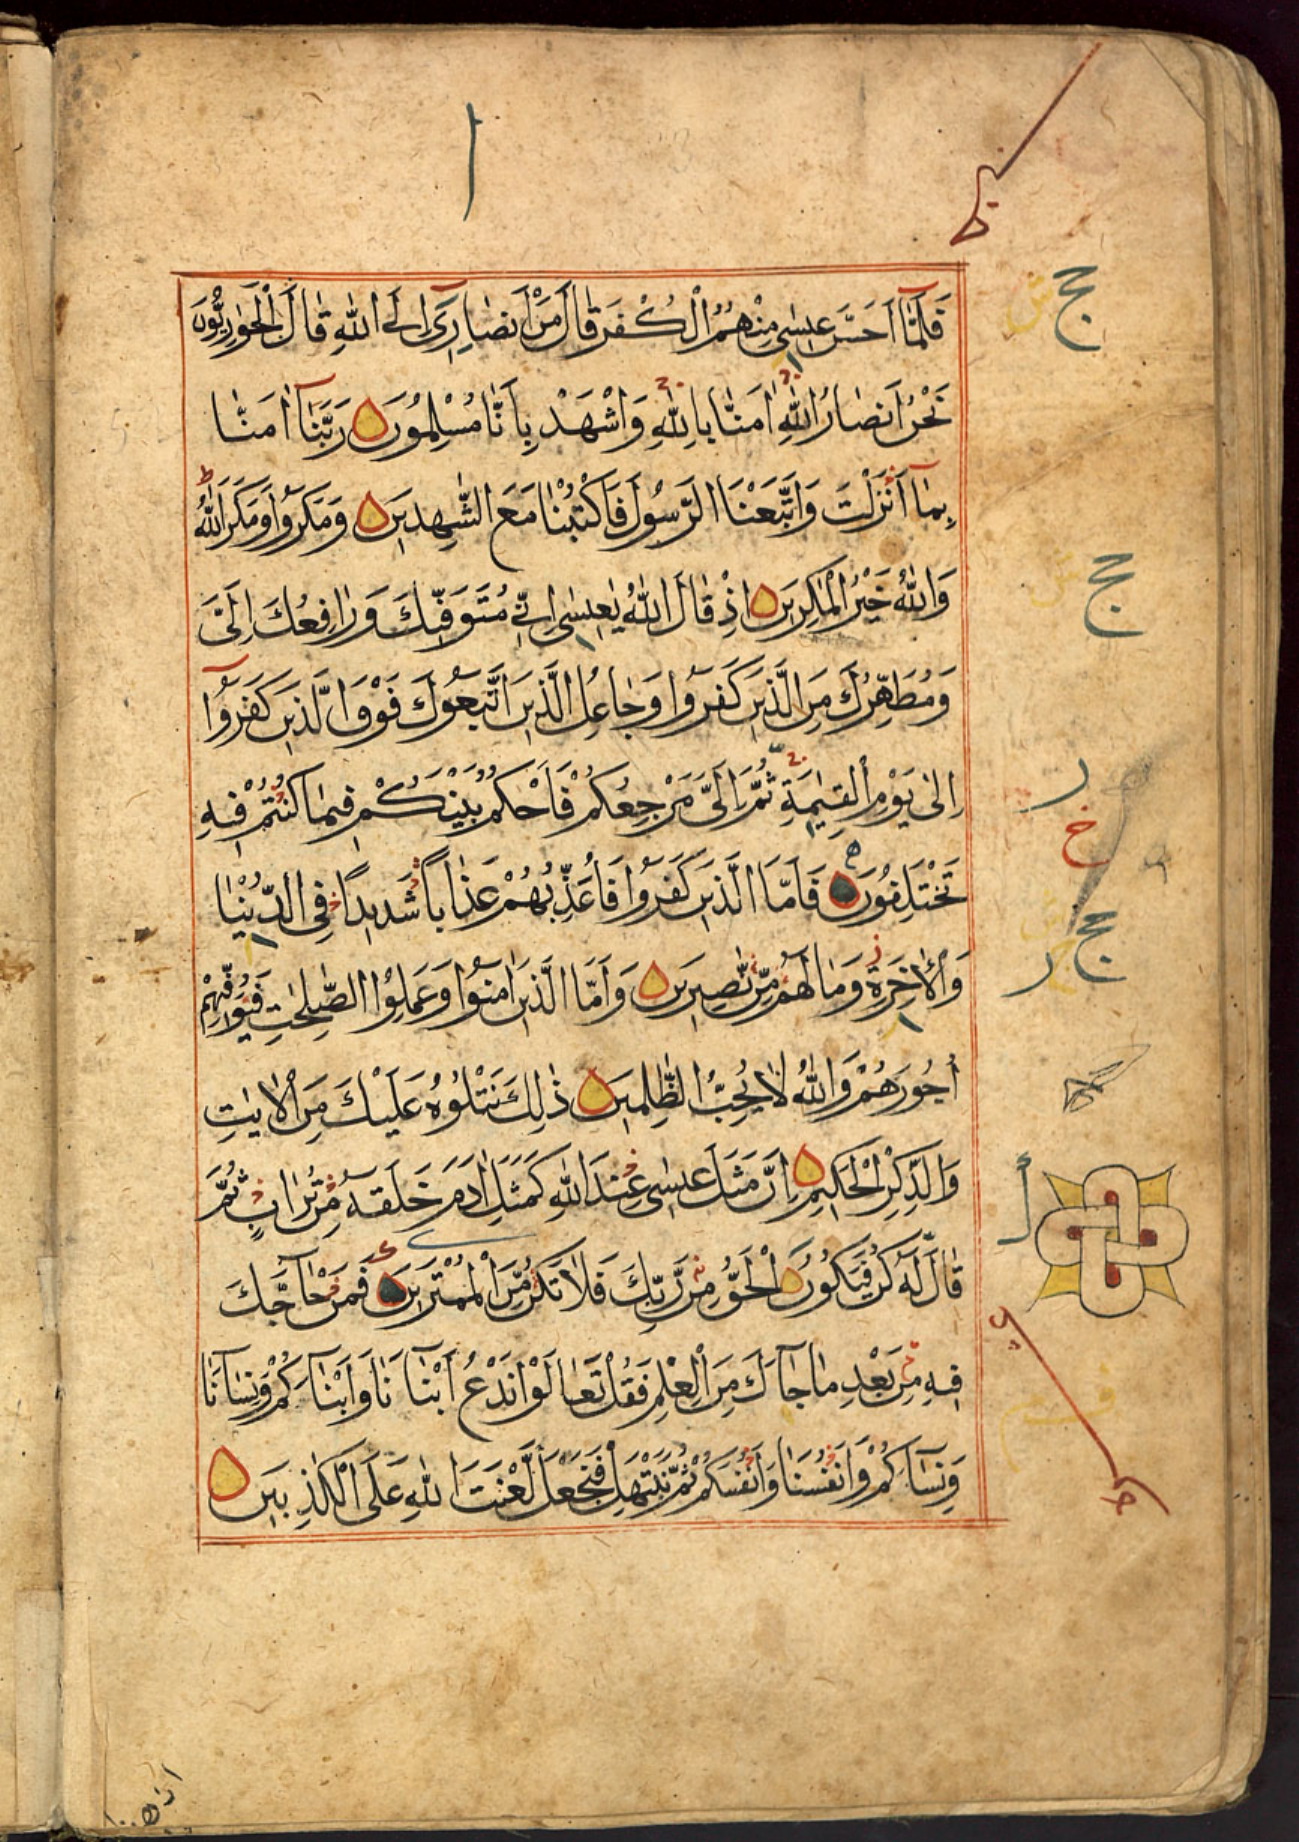 فَلَمَّا أَحَسَّ عِيسٰى مِنْهُمُ الْكُفْرَ قَالَ مَنْ أَنصَارِي إِلَى اللّٰهِ قَالَ الْحَوَارِيُّونَ
نَحْنُ أَنصَارُ اللّٰهِ اٰمَنَّا بِاللّٰهِ وَاشْهَدْ بِأَنَّا مُسْلِمُونَ رَبَّنَا اٰمَنَّا
بِمَا أَنْزَلْتَ وَاتَّبَعْنَا الرَّسُولَ فَاكْتُبْنَا مَعَ الشّٰهِدِينَ وَمَكَرُوا وَمَكَرَ اللّٰهُ
وَاللّٰهُ خَيْرُ الْمَاكِرِينَ إِذْ قَالَ اللّٰهُ يٰعِيسٰى إِنِّي مُتَوَفِّيكَ وَرَافِعُكَ إِلَيَّ
وَمُطَهِّرُكَ مِنَ الَّذِينَ كَفَرُوا وَجَاعِلُ الَّذِينَ اتَّبَعُوكَ فَوْقَ الَّذِينَ كَفَرُوا
إِلٰى يَوْمِ الْقِيٰمَةِ ثُمَّ إِلَيَّ مَرْجِعُكُمْ فَأَحْكُمُ بَيْنَكُمْ فِيمَا كُنْتُمْ فِيهِ
تَخْتَلِفُونَ فَأَمَّا الَّذِينَ كَفَرُوا فَأُعَذِّبُهُمْ عَذَابًا شَدِيدًا فِي الدُّنْيَا
وَالْاٰخِرَةِ وَمَا لَهُمْ مِنْ نّٰصِرِينَ وَأَمَّا الَّذِينَ اٰمَنُوا وَعَمِلُوا الصّٰلِحٰتِ فَيُوَفِّيهِمْ
أُجُورَهُمْ وَاللّٰهُ لَا يُحِبُّ الظّٰلِمِينَ ذٰلِكَ نَتْلُوهُ عَلَيْكَ مِنَ الْاٰيٰتِ
وَالذِّكْرِ الْحَكِيمِ إِنَّ مَثَلَ عِيسٰى عِنْدَ اللّٰهِ كَمَثَلِ اٰدَمَ خَلَقَهُ مِنْ تُرَابٍ ثُمَّ
قَالَ لَهُ كُنْ فَيَكُونُ الْحَقُّ مِنْ رَبِّكَ فَلَا تَكُنْ مِّنَ الْمُمْتَرِينَ فَمَنْ حَاجَّكَ
فِيهِ مِنْ بَعْدِ مَا جَاءَكَ مِنَ الْعِلْمِ فَقُلْ تَعَالَوْا نَدْعُ أَبْنَاءَنَا وَأَبْنَاءَكُمْ وَنِسَاءَنَا
وَنِسَاءَكُمْ وَأَنْفُسَنَا وَأَنْفُسَكُمْ ثُمَّ نَبْتَهِلْ فَنَجْعَلْ لَّعْنَتَ اللّٰهِ عَلَى الْكٰذِبِينَ